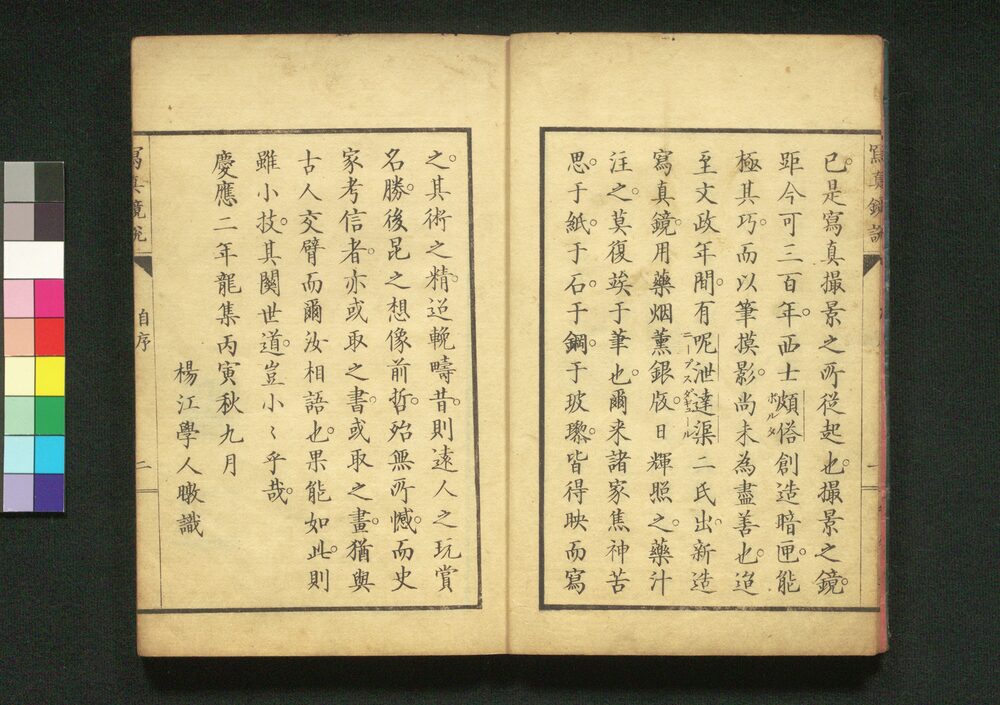 寫真鏡説
一
已是寫真撮景之所從起也。撮景之鏡。
距今可三百年。西士頗偣創造暗匣。能
ポルタ
極其巧。而以筆摸影。尚未為盡善也。迨
至文政年間。有呢泄達渠二氏出。新造
ニープスダギュール
寫真鏡。用藥烟薰銀版。日輝照之。藥汁
注之。莫復俟于筆也。爾来諸家焦神苦
思。于紙。于石。于鋼。于玻瓈。皆得映而寫
之。其術之精。迢輓疇昔。則遠人之玩賞
名勝。後昆之想像前哲。殆無所憾。而史
家考信者。亦或取之書。或取之畫。猶與
古人交臂而爾汝相語也。果能如此。則
雖小技。其關世道。豈小〻乎哉。
慶應二年龍集丙寅秋九月
楊江學人暾識
寫真鏡説
自序
二